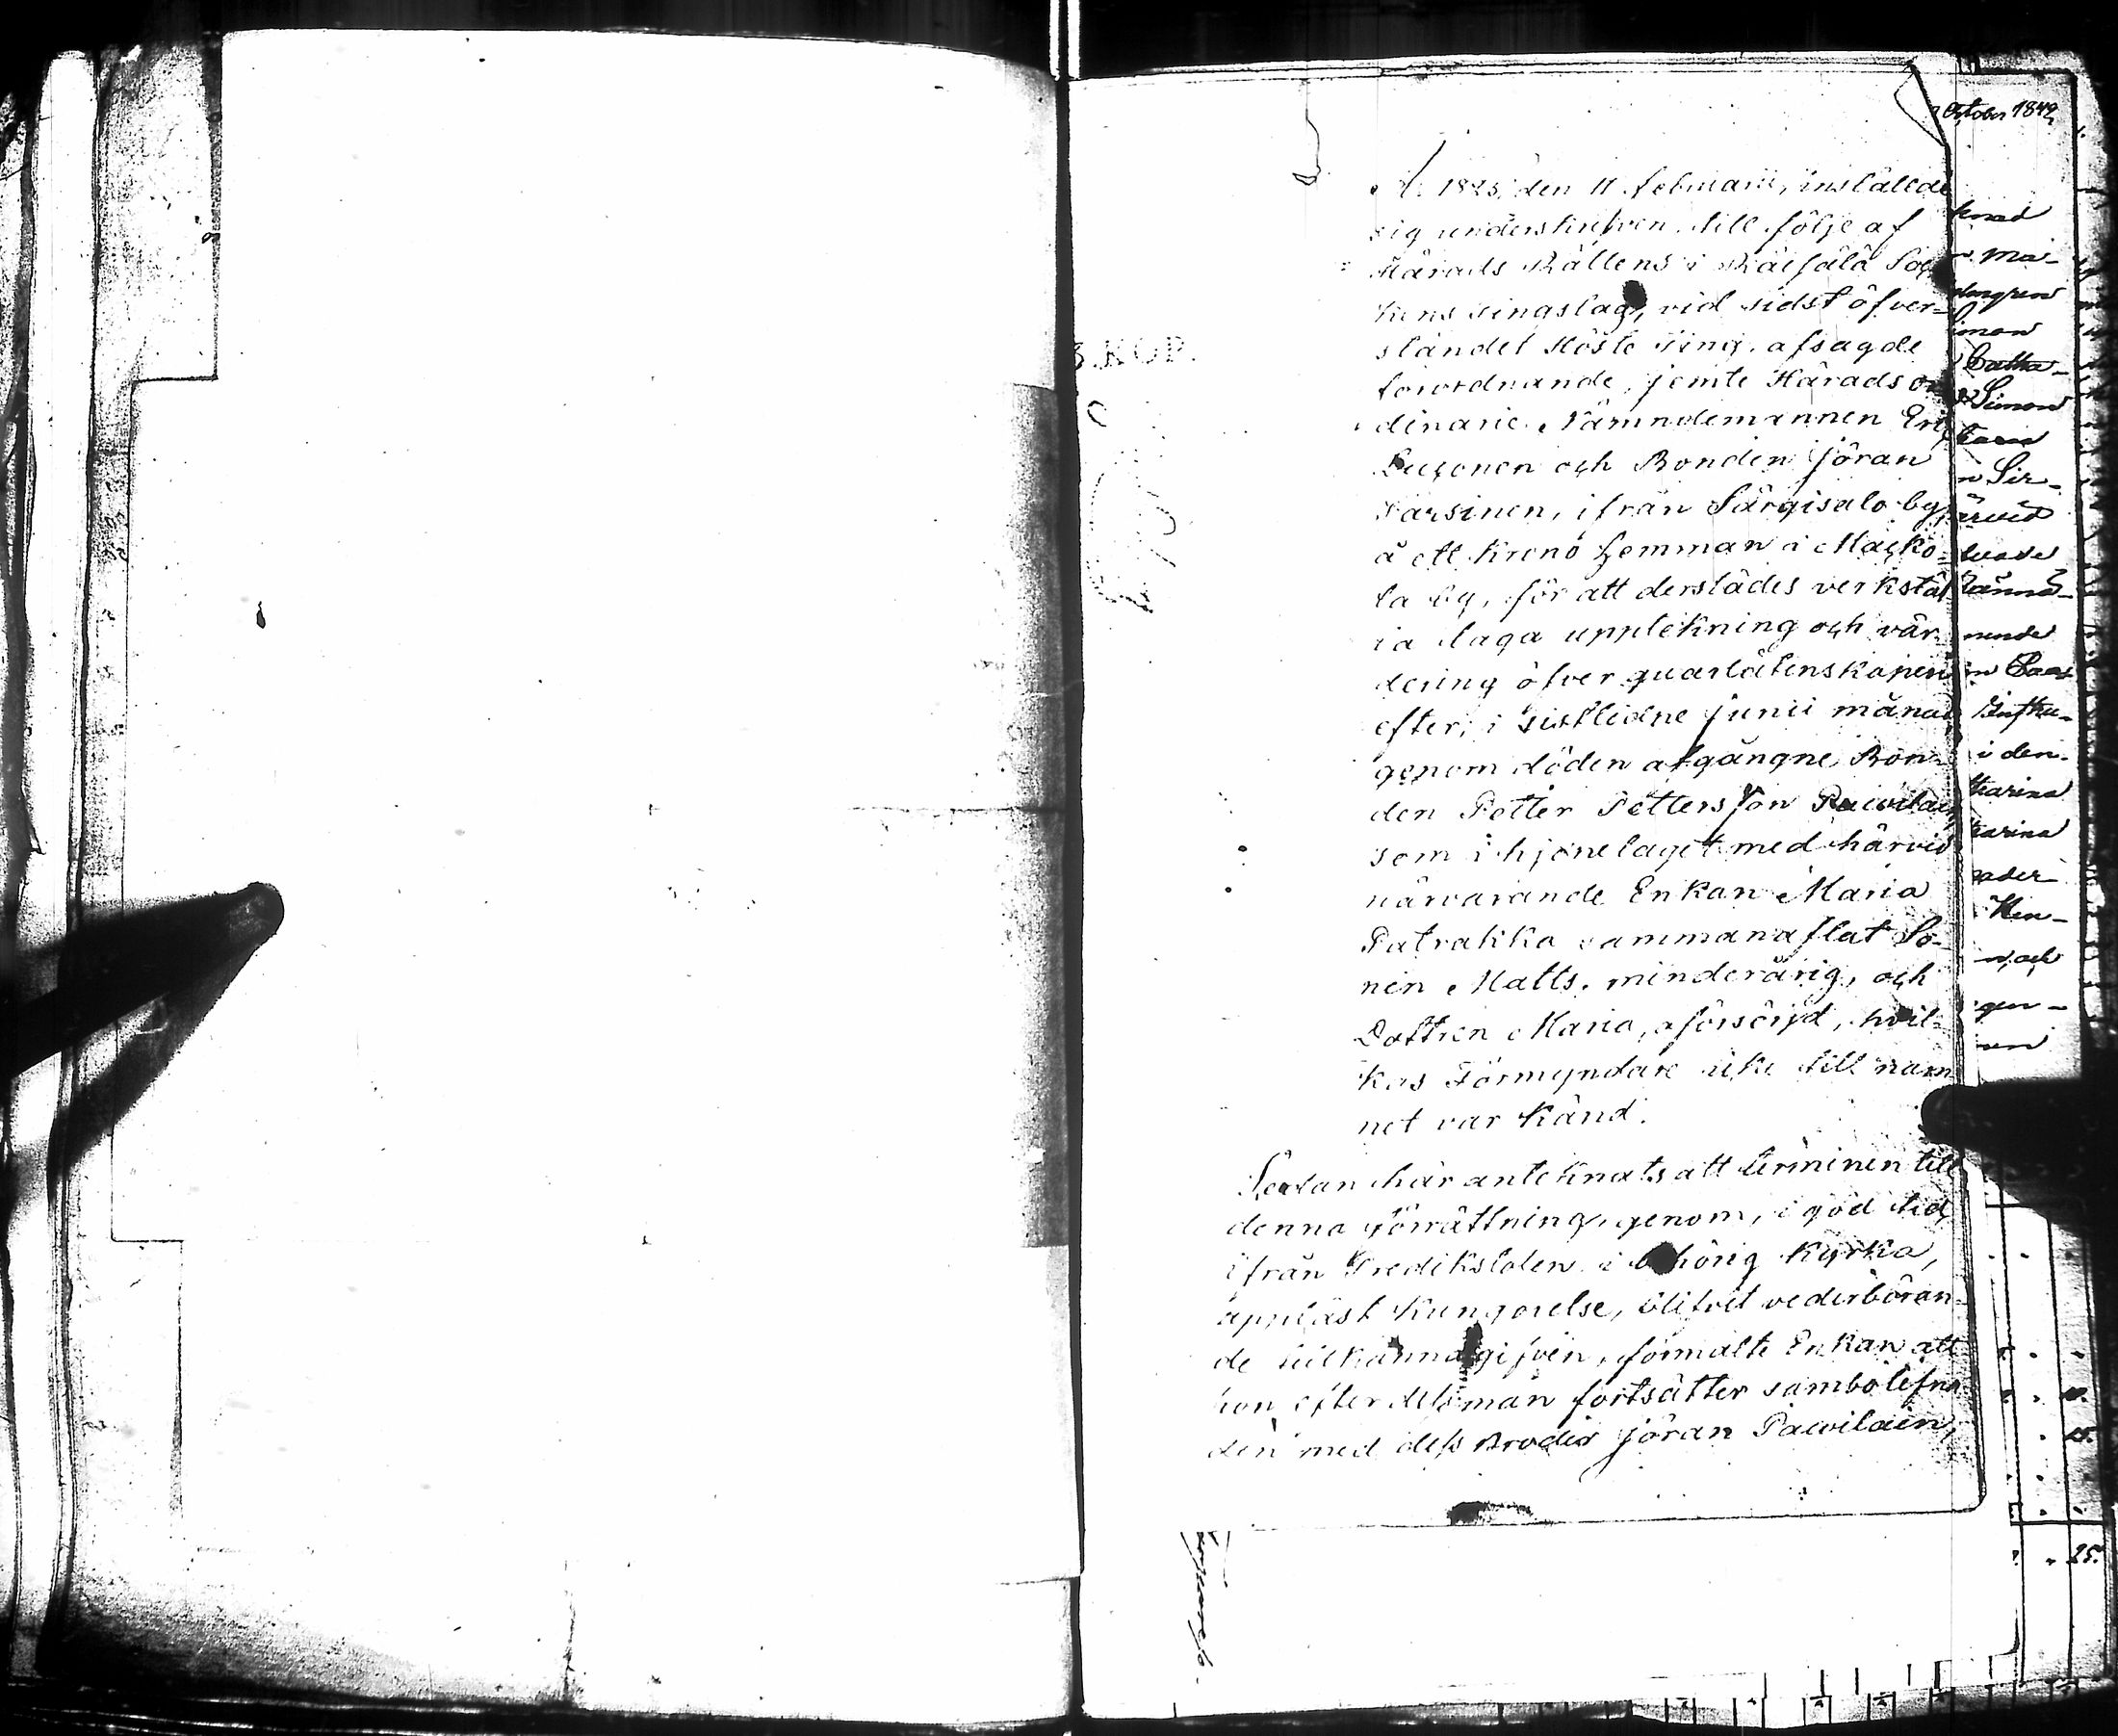 October 1842
3.KOP.
A. 1823, den 11 februarii, inställde
sig underskrifven till följe af
Härads Rättens i Räisälä Soc
kens tingslag, vid sidst öfver=
ståndet Höste Ting, afsagde
förordnande, jemte Härads or
dinarie Nämndemannen Eric
Lusonen och Bonden Jöran
Karsinen, ifrån Särgisalo by,
å ett Krono hemman i Macko=
la by, för att derstädes verkstäl
la laga uppteckning och vär=
dering öfver quarlåtenskapen
efter, i sistlidne junii månad
genom döden afgångne Bon=
den Petter Pettersson Pawilain
som i hjonelaget med härvid
närvarande Enkan Maria
Patrakka sammanaflat So=
nen Matts, minderårig, och
Dottren Maria, oförsörjd, hvil=
kas Förmyndare icke till nam
net var känd.
Sedan här antecknats att terminen till
denna förrättning, genom, i god tid
ifrån Predikstolen i behörig Kyrka,
uppläst Kungörelse, blifvit vederböran=
de tillkännagifven, förmälte Enkan att
hon efter dess man fortsätter sambolefna
den med dess Broder Jöran Pawilain,
knad
n Ma-
imon
Catha-
Simon
n Sir-
ärvid
nunde
i den
tharina
tharina
n, och
25.